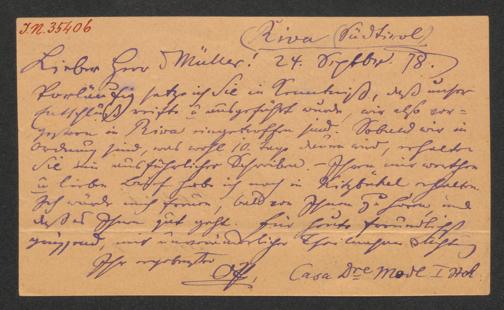 I.N. 35406
Riva (Südtirol)
Lieber Herr Müller! 24. Septbr. 98.
Vorläufig setze ich Sie in Kenntniß, daß unser
Entschluß reifte u ausgeführt wurde, wir also vor-
gestern in Riva eingetroffen sind. Sobald wir in
Ordnung sind, was wohl 10 Tage dauern wird, erhalten
Sie ein ausführliches Schreiben. – Ihren mir werthen
u lieben Brief habe ich noch in Kitzbühel erhalten.
Ich würde mich freuen, bald von Ihnen zu hören und
daß es Ihnen gut geht. Für heute freundlichst
grüssend, mit unveränderlicher Theilnahme u Achtung
Ihr ergebenster
Casa Dre Modl I Stock